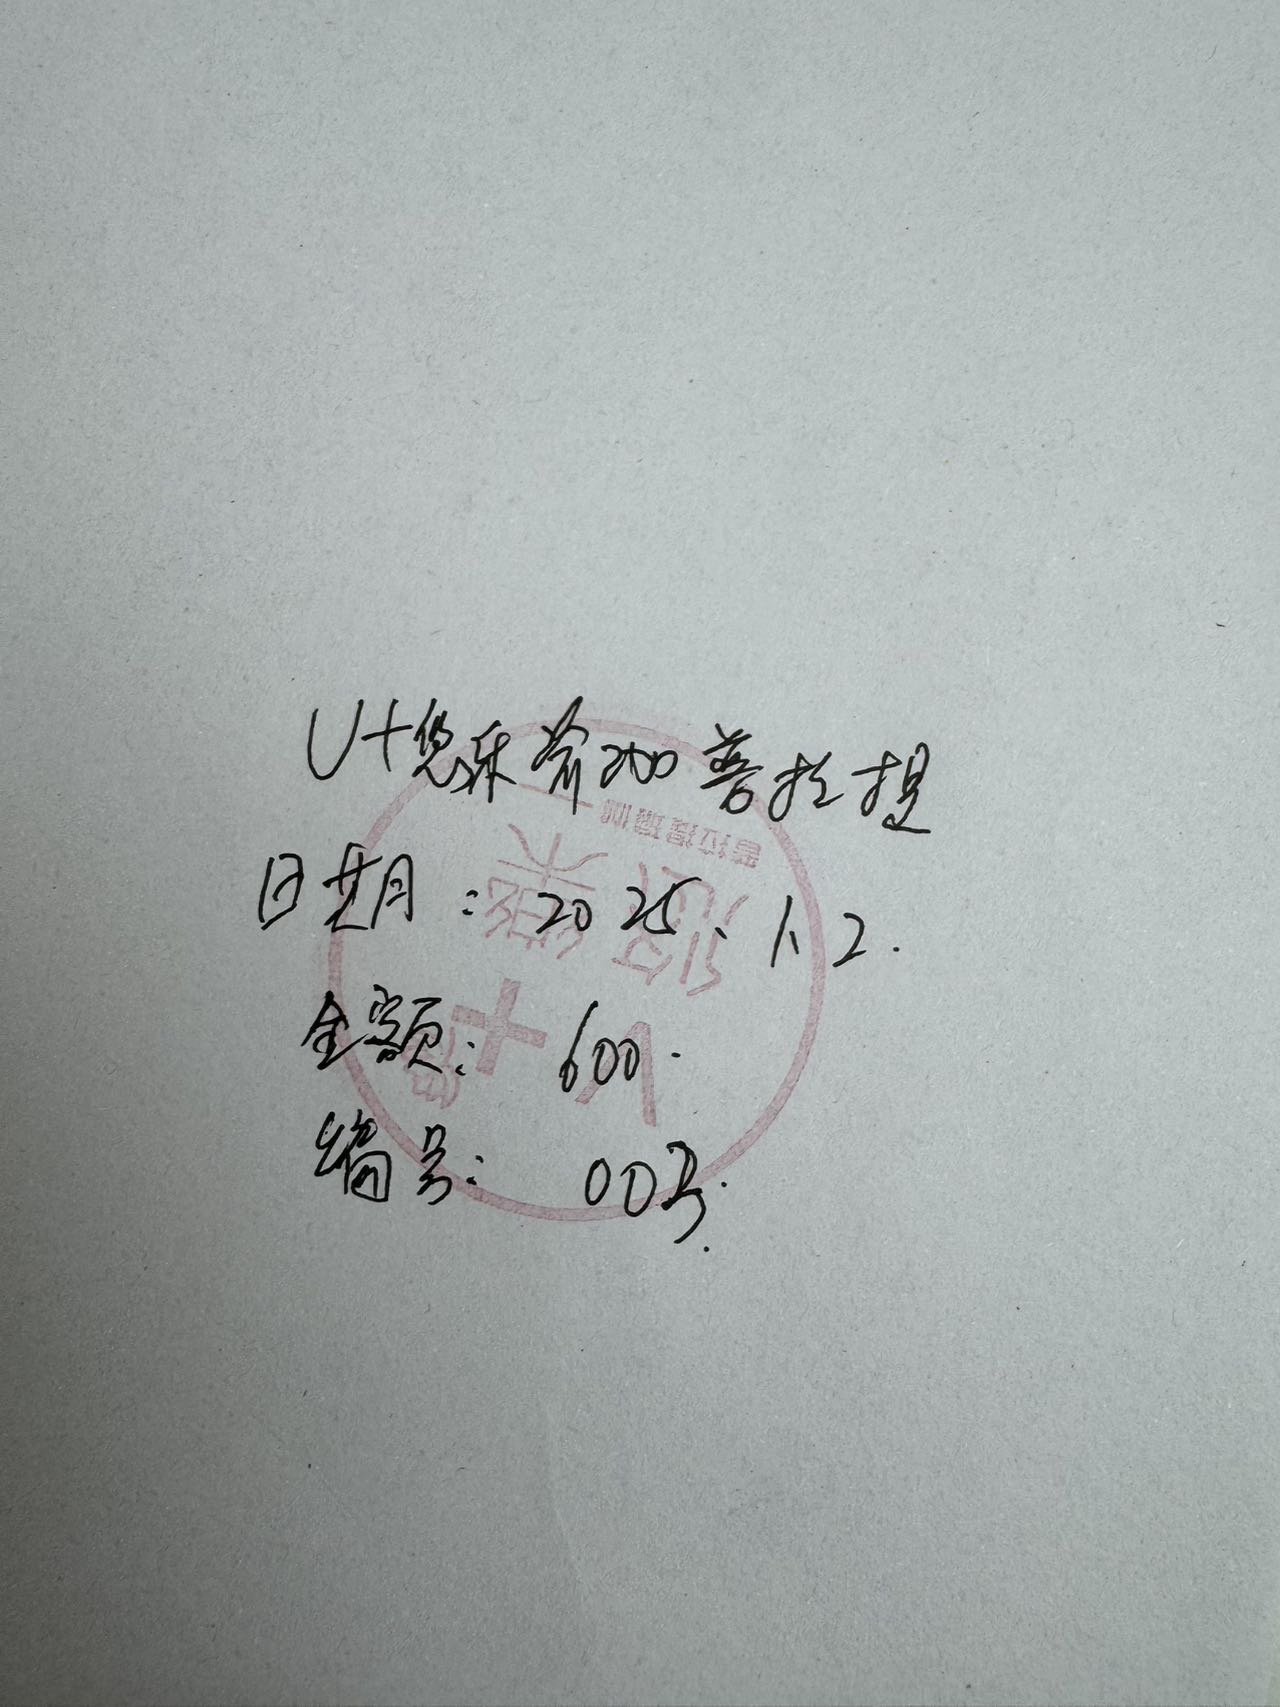 U+悠乐瑜加普拉提
日期：2025.1.2.
金额：600.
编号：003.